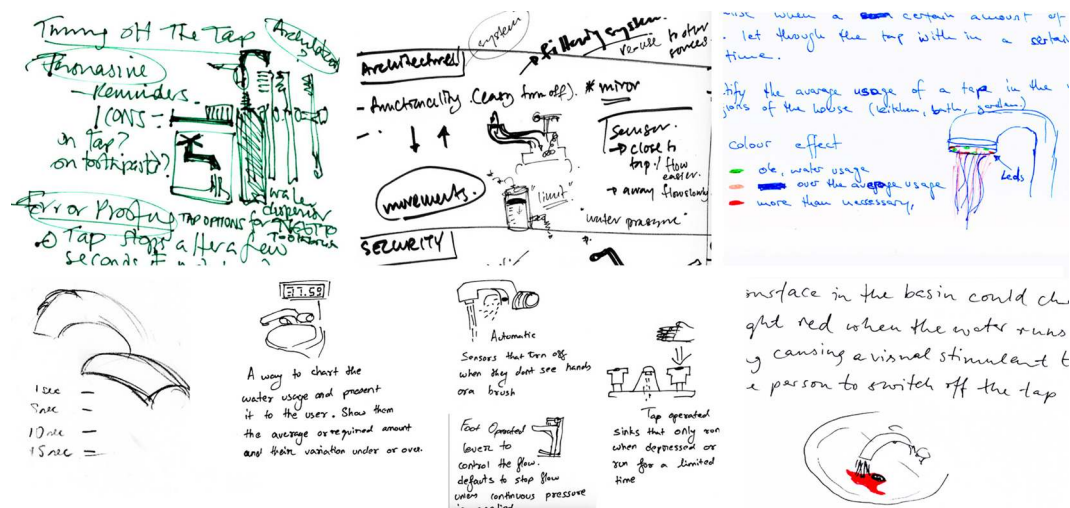 Turning off The Tap
Architecture
- Reminders.
ICONS =
in tap?
on toothpaste?
water
dispenser
Error Proofing TAP OPTIONS for
Tap stops after a few
seconds
system
re-use to other
Architectures
- functionality (easy turn off). * mirror
Sensor.
→ close to
tap / flow
easier.
→ away flow slowly
movements.
"limit"
"water pressure"
SECURITY
when a certain amount of
. let through the tap with in a certain
time.
tify the average usage of a tap in the
of the house (kitchen, bath, garden)
colour effect
ok, water usage
over the average usage
more than neccessary,
Leds
1 sec
5 sec
10 sec
15 sec
37.59
A way to chart the
water usage and present
it to the user. Show them
the average or required amount
and their variation under or over.
Automatic
Sensors that turn off
when they dont see hands
or a brush
Foot Operated
levers to
control the flow.
defaults to stop flow
unless continuous pressure
is applied
Tap operated
sinks that only run
when depressed or
run for a limited
time
surface in the basin could cha
ght red when the water runs
causing a visual stimulant t
e person to switch off the tap